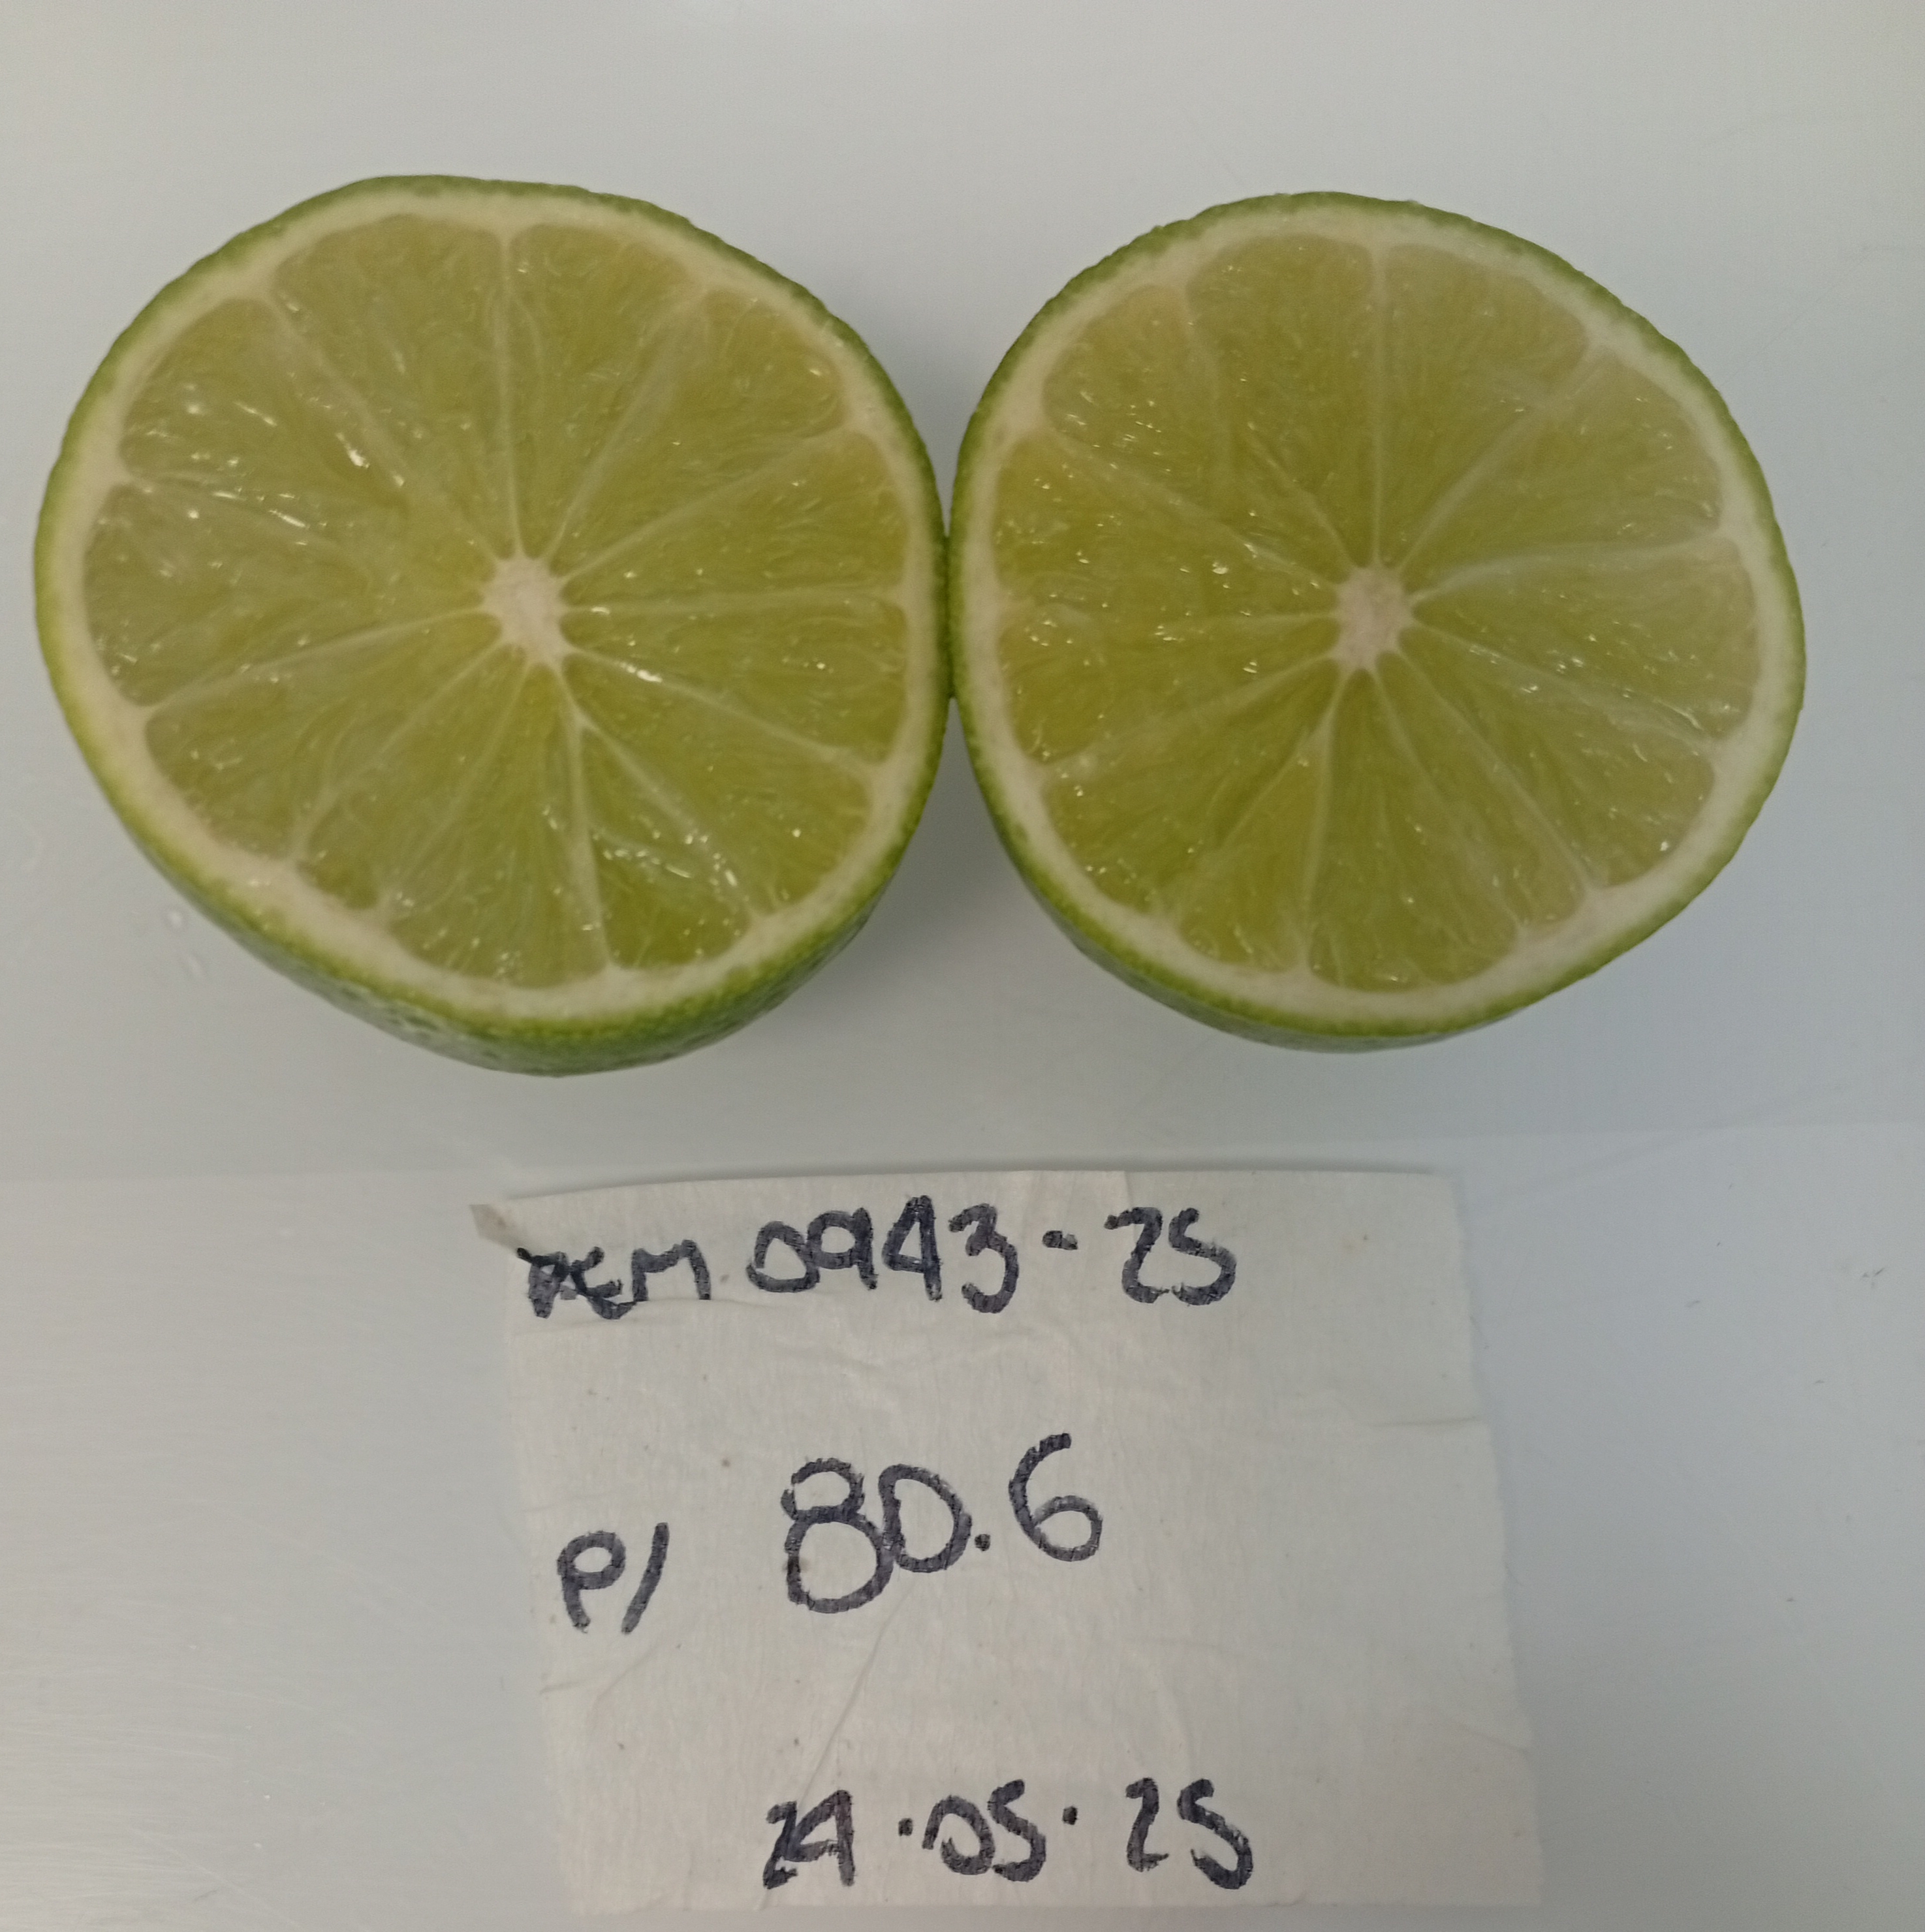 REM 0943-25
P/ 80.6
24.05.25